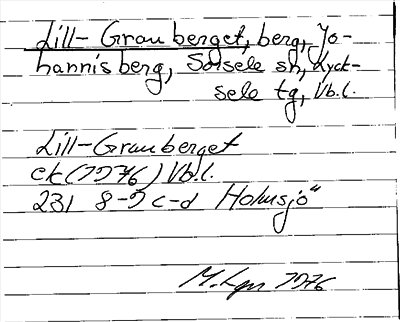 Lill-Grauberget, berg, Jo-
hannisberg, Sorsele sn, Lyck-
sele tg, Vb.l.
Lill-Grauberget
ek (1976) Vb.l.
231 8-9 c-d Holmsjö"
M. Lgn 1976